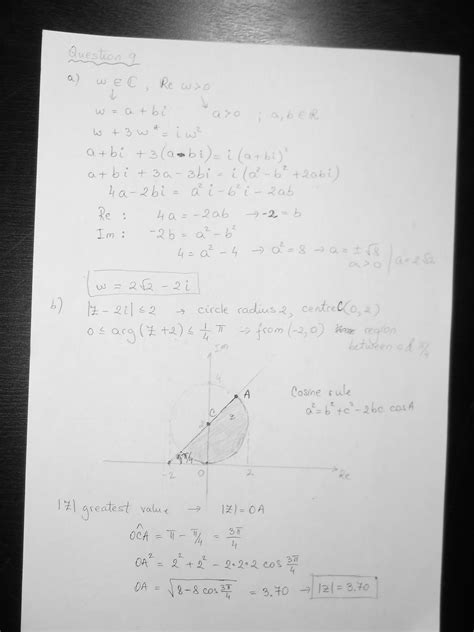 Question 9
a) w ∈ ℂ, Re w>0
w = a + bi a>0 ; a,b ∈ ℝ
w + 3w* = i w²
a+bi + 3(a-bi) = i(a+bi)²
a+bi + 3a-3bi = i(a²-b²+2abi)
4a-2bi = a²i-b²i-2ab
Re : 4a = -2ab → -2 = b
Im : -2b = a²-b²
4 = a²-4 → a²=8 → a = ±√8
a>0 a = 2√2
w = 2√2 - 2i
b) |z-2i| ≤ 2 → circle radius 2, centre C(0,2)
0 ≤ arg(z+2) ≤ 1/4 π → from (-2,0) region
between 0 & π/4
Im
4
A
C
2
z
π/4
-2
0
2
Re
Cosine rule
a² = b² + c² - 2bc cosA
|z| greatest value → |z| = OA
OĈA = π - π/4 = 3π/4
OA² = 2² + 2² - 2·2·2 cos 3π/4
OA = √(8-8cos 3π/4) = 3.70 → |z| = 3.70